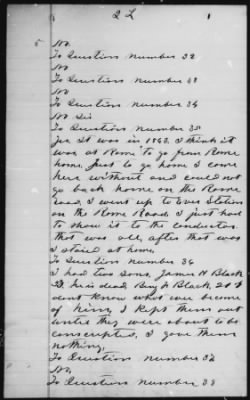 2 L 1
5 No
To Question number 32
No
To Question number 33
No
To Question number 34
No Sir
To Question number 35
Yes It was in 1863. I think it
was at Rome to go from Rome
home. Just to go home I come
here without and could not
go back home on the Rome
road, I went up to Eves Station
on the Rome Road. I just had
to show it to the conductor
that was all, after that was
I staid at home.
To Question number 36
I had two sons, James H Black
he is dead, Benj F Black, 21 I
dont know what ever become
of him, I kept them out
until they were about to be
conscripted, I gave them
nothing.
To Question number 37
No,
To Question number 38